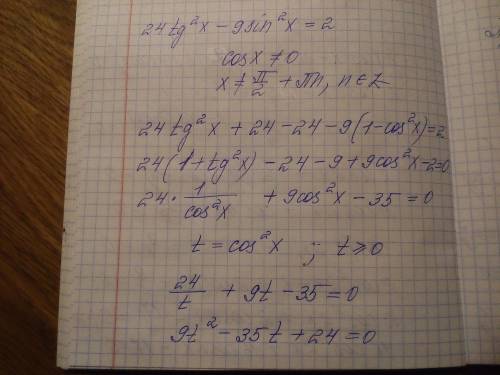 24tg²x − 9sin²x = 2
cosx ≠ 0
x ≠ π/2 + πn, n ∈ Z
24tg²x + 24 − 24 − 9(1−cos²x)=2
24(1+tg²x) − 24 − 9 + 9cos²x −2=0
24 · 1/cos²x + 9cos²x − 35 = 0
t = cos²x ; t ⩾ 0
24/t + 9t − 35 = 0
9t² − 35t + 24 = 0